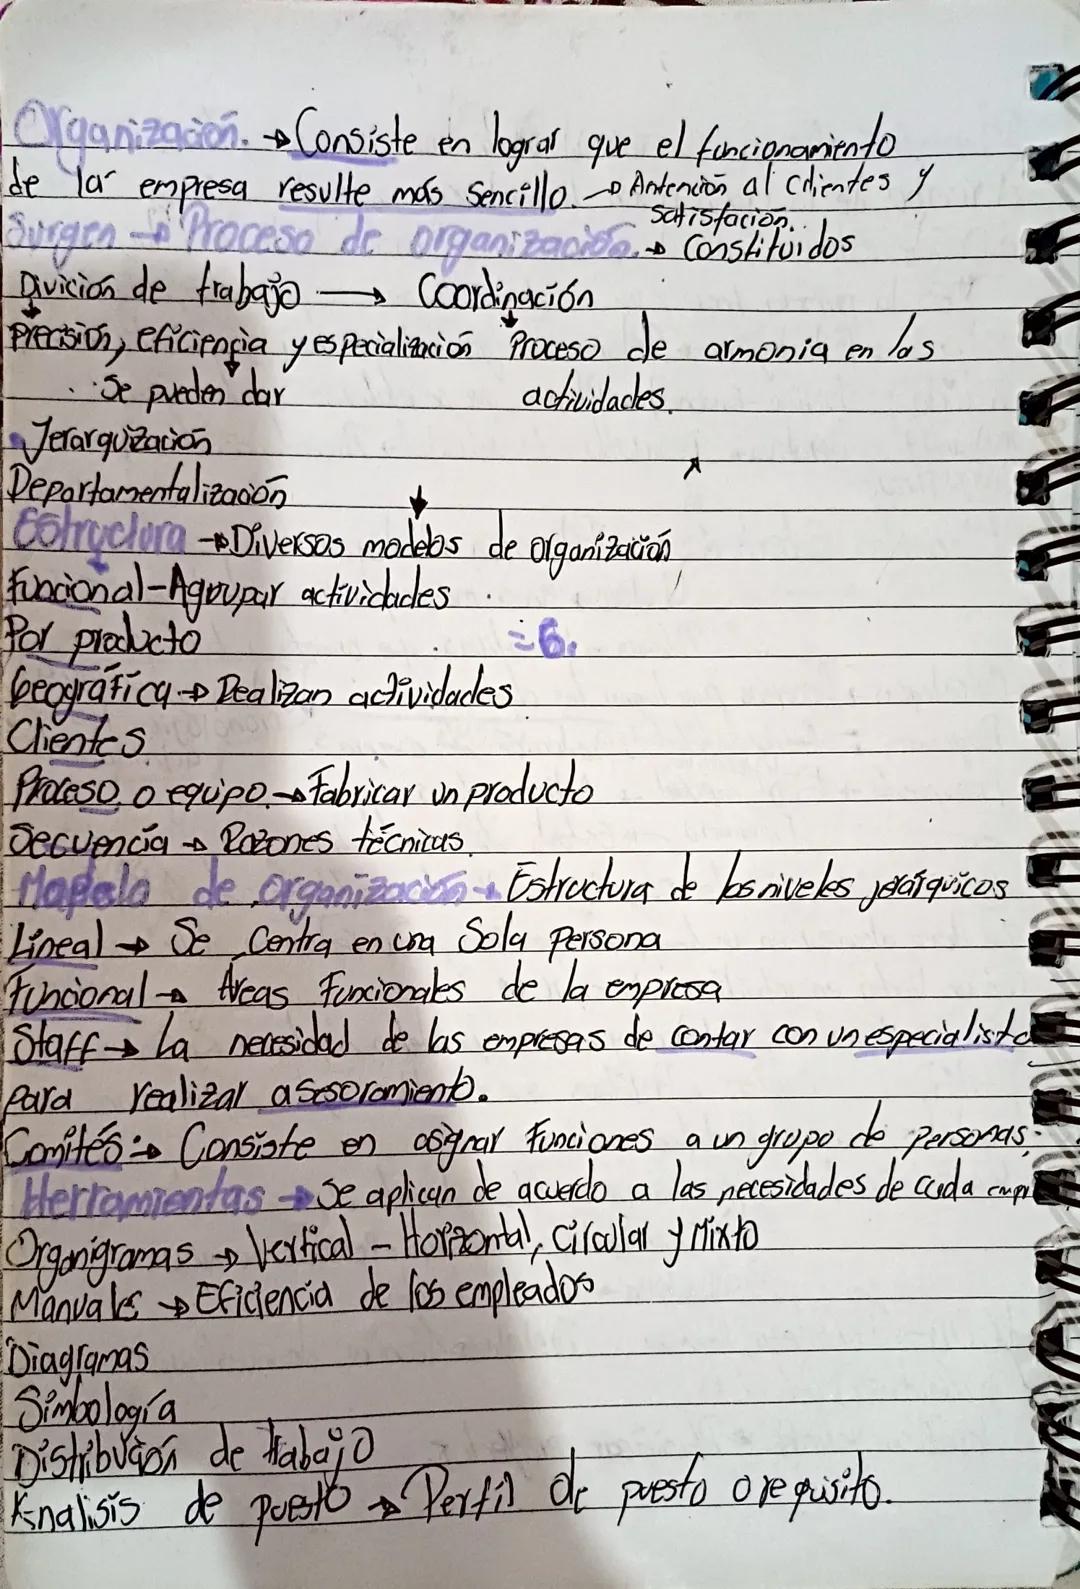 Organización. → Consiste en lograr que el funcionamiento
de lar empresa resulte más sencillo. → Antención al clientes y
satisfación.
Surgen → Proceso de organización. → Constituidos
Divición de trabajo → Coordinación
Precisión, eficiencia y especialización Proceso de armonia en las
Se pueden dar actividades.
Jerarquización
Departamentalización
Estructura → Diversos modelos de organización
Funcional - Agrupar actividades
Por producto = 6.
Geográfica → Dealizan actividades
Clientes
Proceso o equipo. → Fabricar un producto
Secuencia → Razones técnicas
de organización → Estructura de los niveles jerárquicos
Lineal → Se Centra en una Sola Persona
Funcional → Áreas Funcionales de la empresa
Staff → La necesidad de las empresas de contar con un especialista
para realizar asesoramiento.
Comités: → Consiste en asignar Funciones a un grupo de Personas.
Herramientas → Se aplican de acuerdo a las necesidades de cada empr
Organigramas → Vertical - Horizontal, Circular y Mixto
Manuales → Eficiencia de los empleados
Diagramas
Simbología
Distribución de trabajo
Analisis de puesto → Perfil de puesto o requisito.